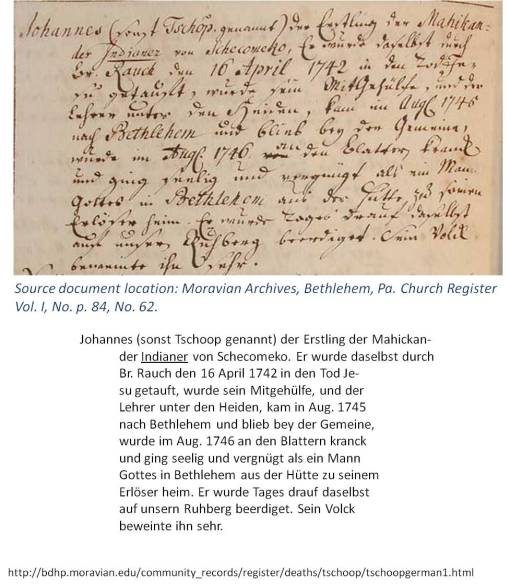 Johannes (sonst Tschop, genannt) der Erstling der Mahikan-
der Indianer von Schecomeko, Er wurde daselbst durch
Br. Rauch den 16 April 1742 in den Tod Je-
su getauft, wurde sein MitGehülfe, und der
Lehrer unter den Heiden, kam im Aug. 1745
nach Bethlehem und blieb bey der Gemeine,
wurde im Aug. 1746 an den Blattern kranck
und ging seelig und vergnügt als ein Mann
Gottes in Bethlehem aus der Hütte zu seinem
Erlöser heim. Er wurde Tages drauf daselbst
auf unsern Ruhberg beerdiget. Sein Volck
beweinte ihn sehr.
Source document location: Moravian Archives, Bethlehem, Pa. Church Register
Vol. I, No. p. 84, No. 62.
Johannes (sonst Tschoop genannt) der Erstling der Mahickan-
der Indianer von Schecomeko. Er wurde daselbst durch
Br. Rauch den 16 April 1742 in den Tod Je-
su getauft, wurde sein Mitgehülfe, und der
Lehrer unter den Heiden, kam in Aug. 1745
nach Bethlehem und blieb bey der Gemeine,
wurde im Aug. 1746 an den Blattern kranck
und ging seelig und vergnügt als ein Mann
Gottes in Bethlehem aus der Hütte zu seinem
Erlöser heim. Er wurde Tages drauf daselbst
auf unsern Ruhberg beerdiget. Sein Volck
beweinte ihn sehr.
http://bdhp.moravian.edu/community_records/register/deaths/tschoop/tschoopgerman1.html